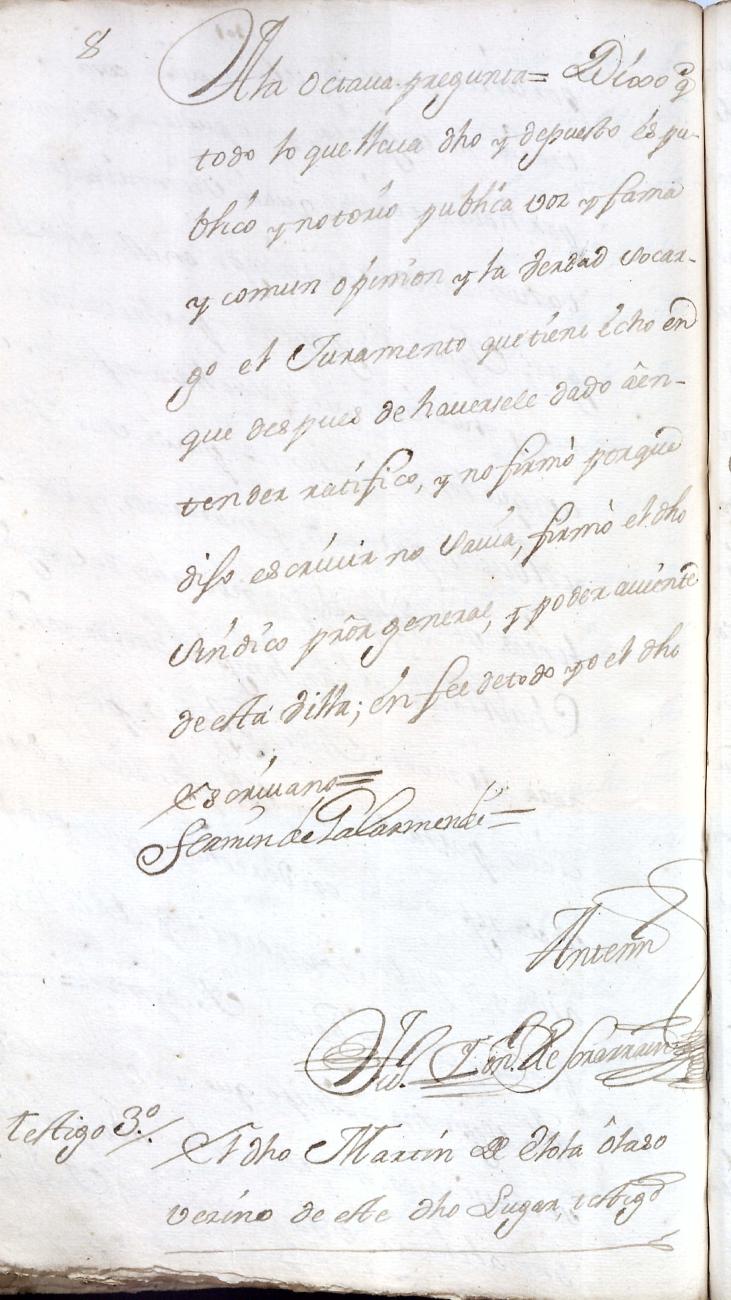 8
A la octaua pregunta= Dixo q̃
todo lo que lleua dho y depuesto és pu-
blico y notorio publica voz y fama
y comun opinion y la berdad socar-
go el Juramento que tiene écho en
que despues de hauersele dado âen-
tender ratifico, y no firmò porque
diso escriuir no sauia, firmò el dho
Sindico prõr general, y poder auiente
de esta billa; én fee de todo yo el dho
Escriuano=
Fermin de Galarmendi=
Antemi
de Sorarrain
testigo 3.º/. El dho Martin de Elola ôlaso
vezino de este dho Lugar, testigo